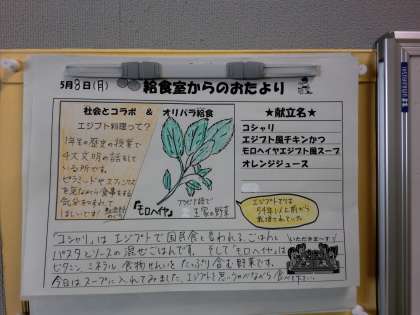 5月8日(月)
給食室からのおたより
社会とコラボ & オリパラ給食
エジプト料理って?
1年生の歴史の授業で
4大文明の話をして
いる所です。
ピラミッドやスフィンクス
を見ながら食事をする
気分を
ほしいです!
『モロヘイヤ』
アラビア語で
王家の野菜
★献立名★
コシャリ
エジプト風チキンかつ
モロヘイヤエジプト風スープ
オレンジジュース
エジプトでは
5千年以上前から
いただきまーす♡
『コシャリ』は エジプトで国民食と言われる、ごはんと
パスタとソースの混ぜごはんです。 そして『モロヘイヤ』は
ビタミン ミネラル 食物せんいを たっぷり含む野菜です。
今日はスープに入れてみました。エジプトを思いうかべながら 食べ